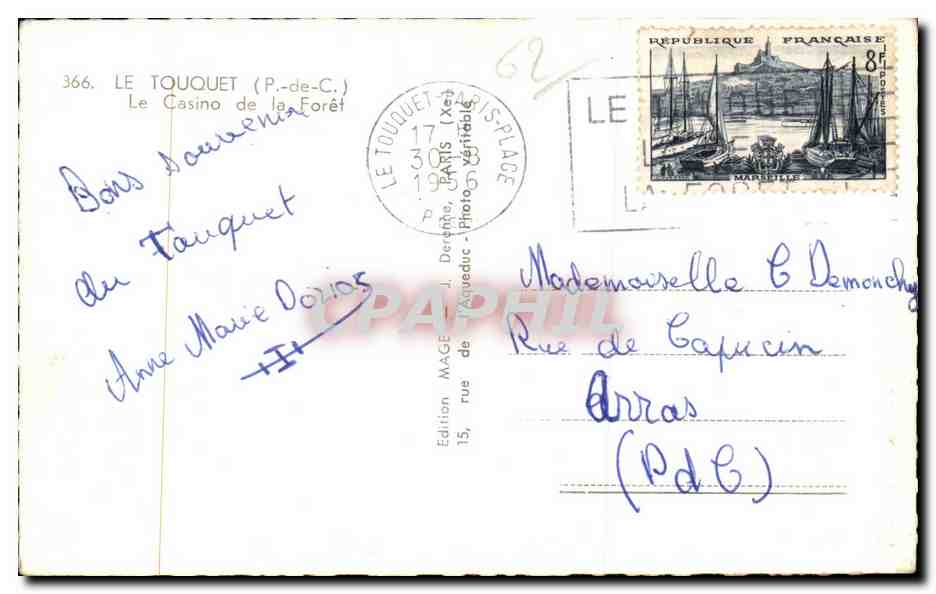 366. LE TOUQUET (P.-de-C.)
Le Casino de la Forêt
Bons souvenirs
du Touquet
Anne Marie
62
LE TOUQUET-PARIS-PLAGE
17
30
1956
P.
LE
LA FORET
REPUBLIQUE FRANÇAISE
8F
POSTES
MARSEILLE
Edition MAGE - J. Deronne, PARIS (Xe)
15, rue de l'Aqueduc - Photo véritable
Mademoiselle C Demonchy
Rue de Capucin
Arras
(P d C)
CPAPHIL